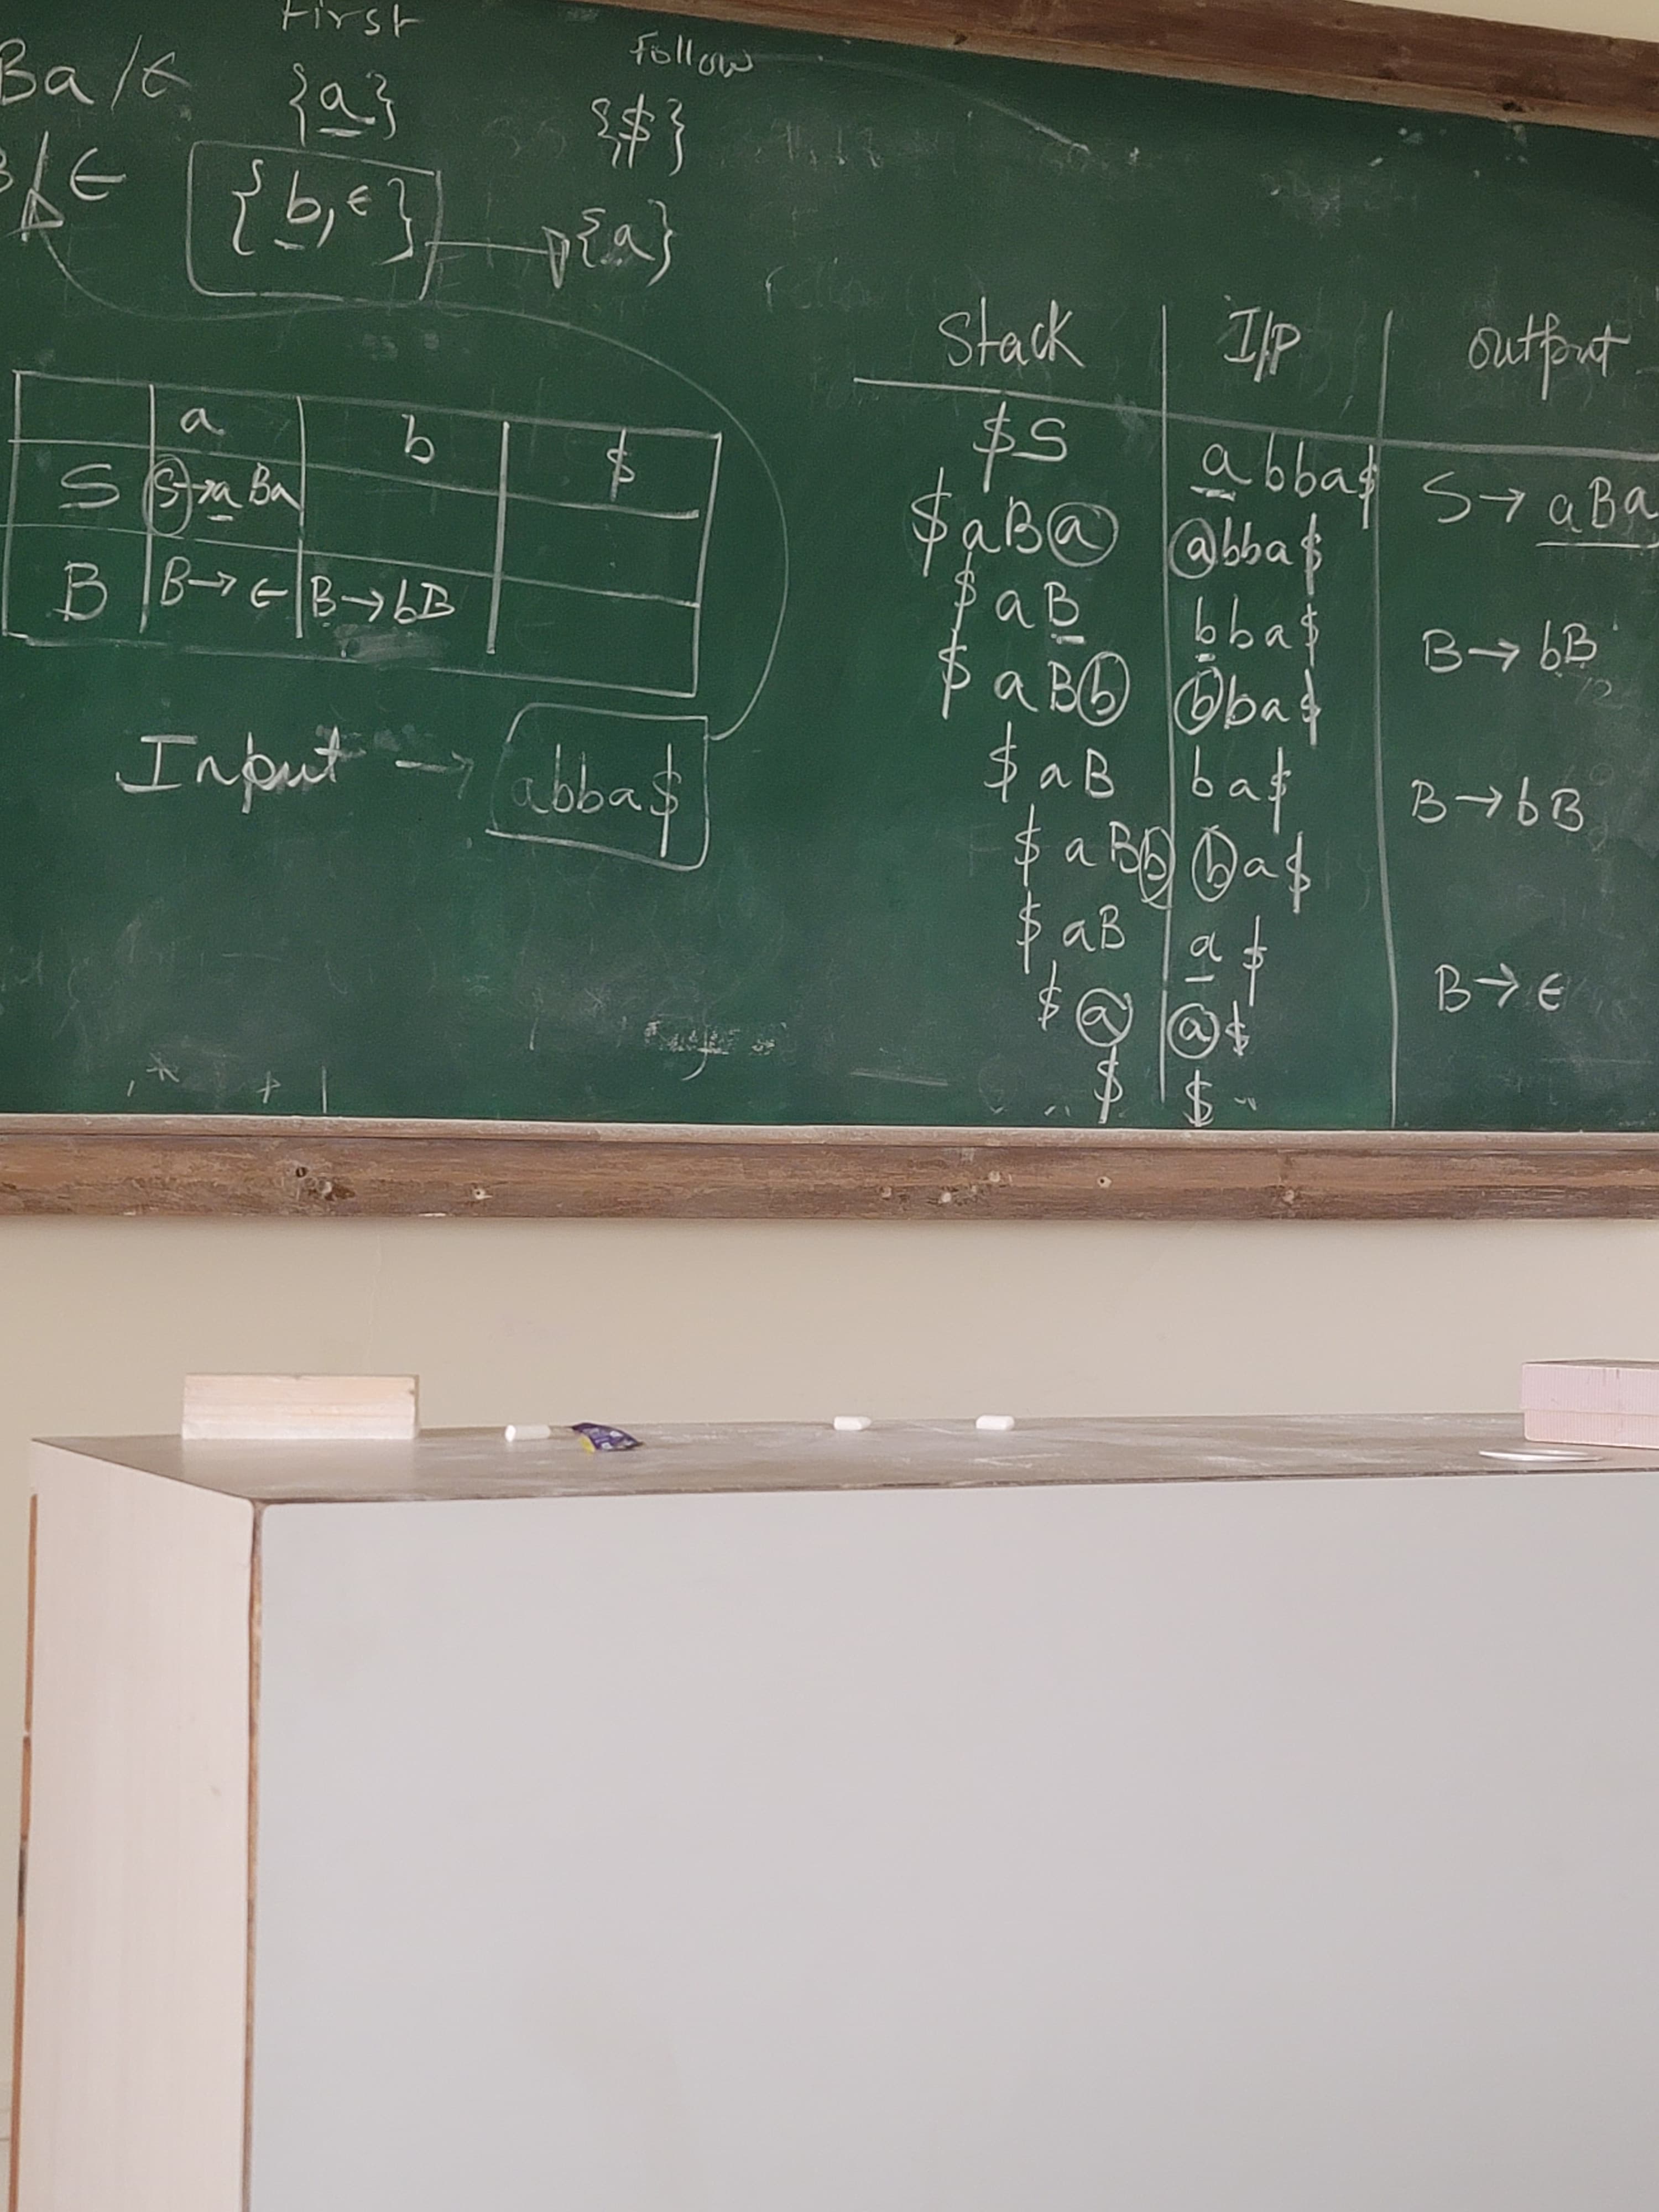 First Follow
Ba/ϵ {a} {$}
B/ϵ {b,ϵ} → {a}
a b $
S S→aBa
B B→ϵ B→bB
Input → abba$
Stack I/P output
$S abba$ S→aBa
$aBa abba$
$aB bba$ B→bB
$aBb bba$
$aB ba$ B→bB
$aBb ba$
$aB a$ B→ϵ
$a a$
$ $